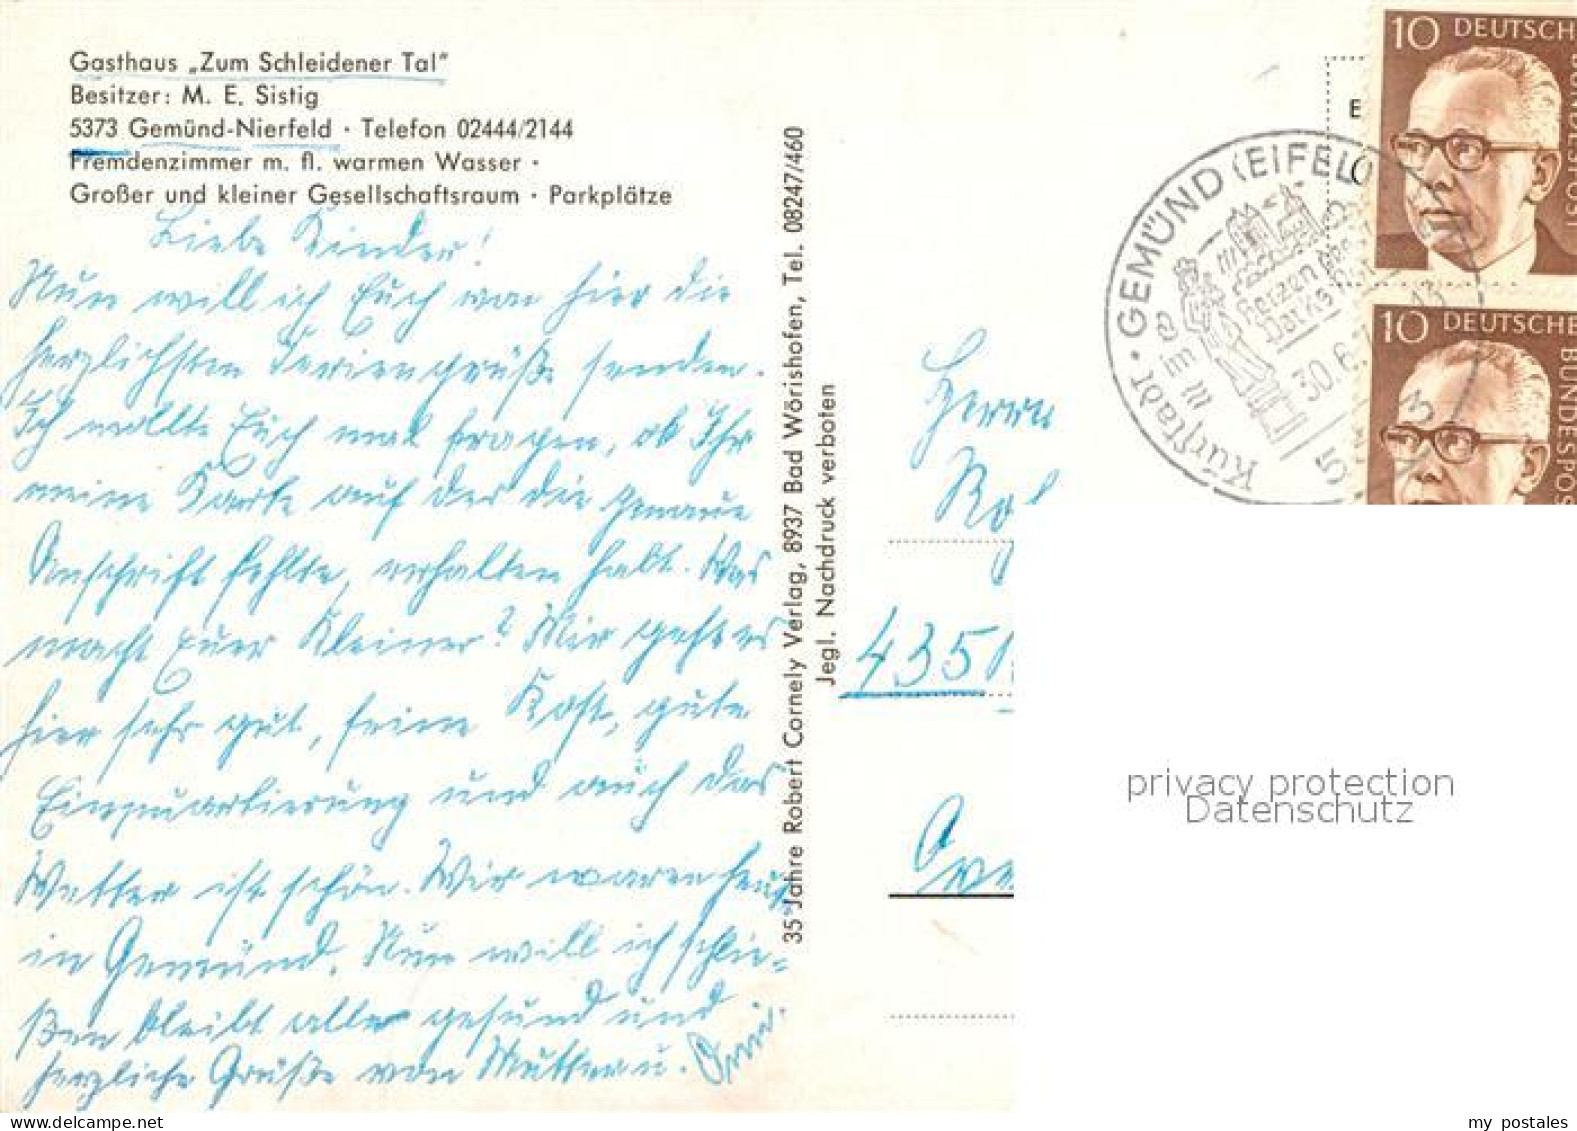 Gasthaus „Zum Schleidener Tal"
Besitzer: M. E. Sistig
5373 Gemünd-Nierfeld · Telefon 02444/2144
Fremdenzimmer m. fl. warmen Wasser ·
Großer und kleiner Gesellschaftsraum · Parkplätze
Liebe Kinder!
Nun will ich Euch von hier die
herzlichsten Feriengrüße senden.
Ich wollte Euch mal fragen, ob Ihr
meine Karte auf der die genaue
Anschrift fehlte, erhalten habt. Was
macht Euer Kleiner? Mir geht es
hier sehr gut, feine Kost, gute
Einquartierung und auch das
Wetter ist schön. Wir waren heut
in Gemünd. Nun will ich schlie-
ßen bleibt alle gesund und
herzliche Grüße von Mutter u. Omi.
35 Jahre Robert Cornely Verlag, 8937 Bad Wörishofen, Tel. 08247/460
Jegl. Nachdruck verboten
10 DEUTSCHE
BUNDESPOST
10 DEUTSCHE
BUNDESPOS
GEMÜND (EIFEL)
Kurstadt
im
Herzen
Parks
30.6.
Herrn
4351
privacy protection
Datenschutz
my postales